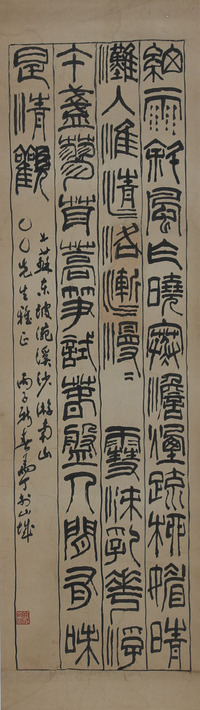 細雨斜風乍曉寒澹煙疏柳媚晴
灘入淮清洛漸漫〻雪沫乳花浮
午盞蓼茸蒿筍試春盤人間有味
是清歡
上蘇東坡浣溪沙游南山
〇〇先生雅正 丙子新春
山城